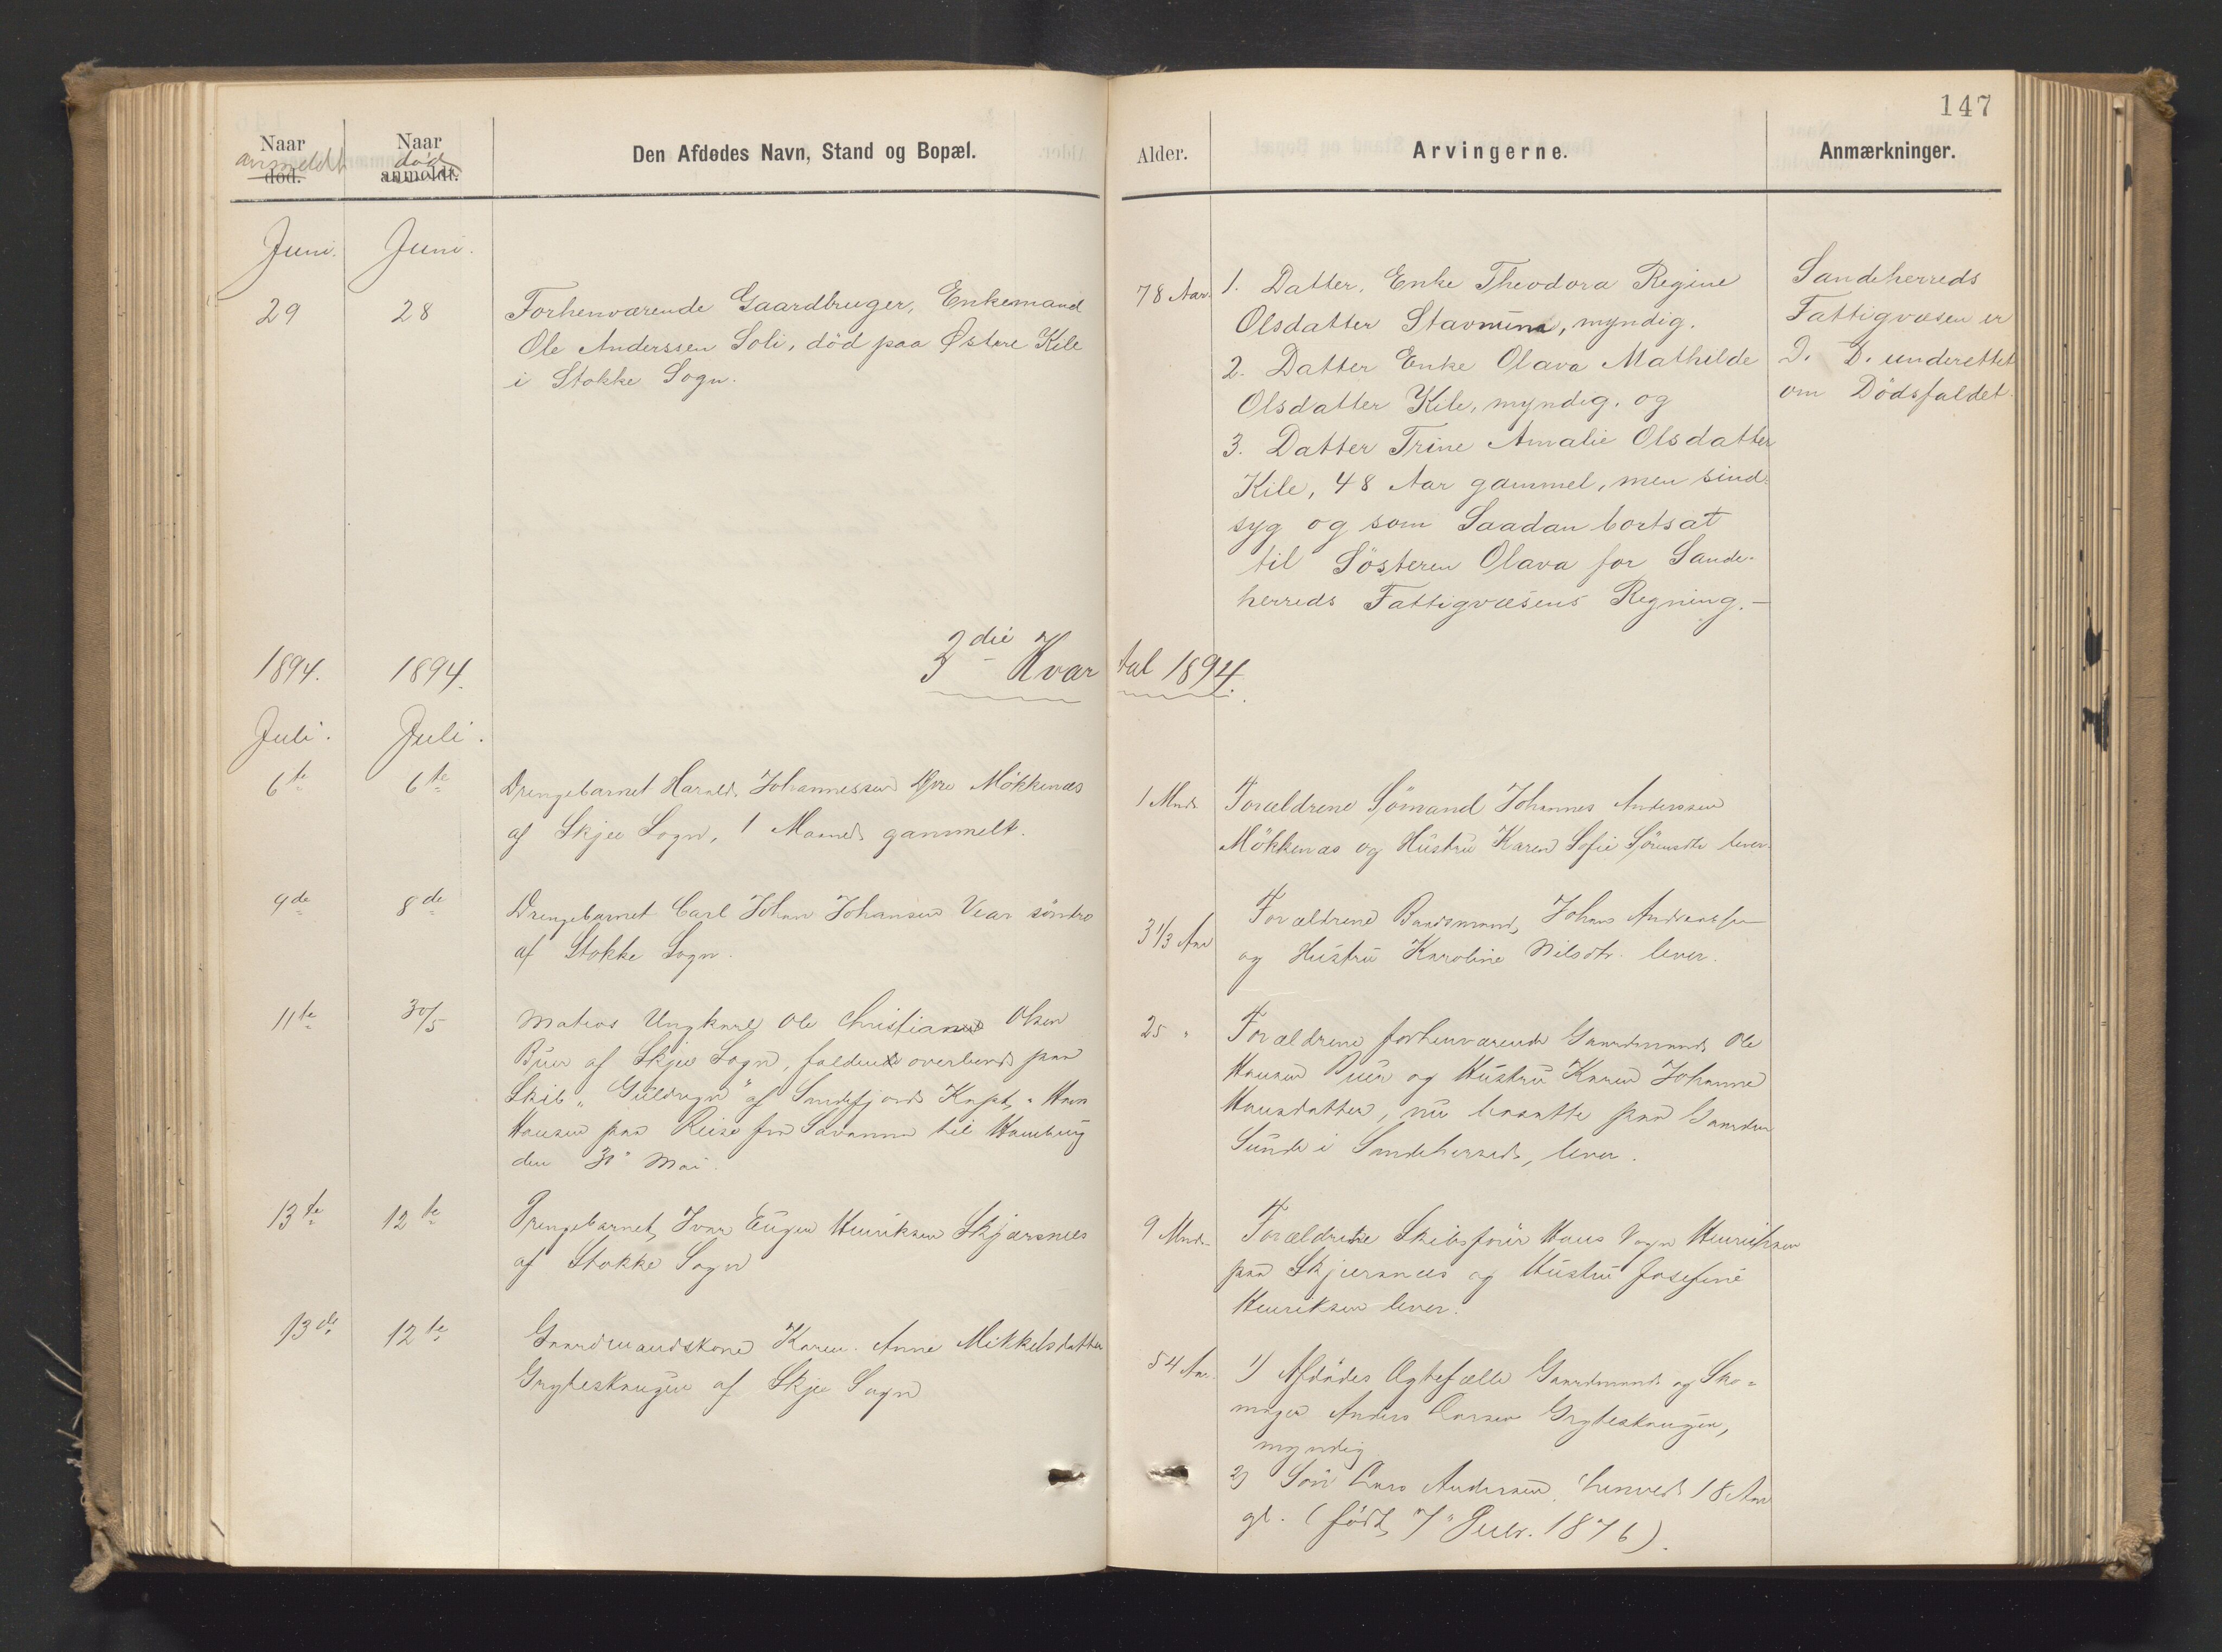 147
Naar anmeldt død.
Naar død anmeldt.
Den Afdødes Navn, Stand og Bopæl.
Alder.
Arvingerne.
Anmærkninger.
Juni. Juni.
29 28 Forhenværende Gaardbruger, Enkemand
Ole Anderssen Soli, död paa Østere Kile
i Stokke Sogn.
78 Aar. 1. Datter, Enke Theodora Regine
Olsdatter Stavnum, myndig.
2. Datter Enke Olava Mathilde
Olsdatter Kile, myndig. og
3. Datter Trine Amalie Olsdatter
Kile, 48 Aar gammel, men sind-
syg og som Saadan bortsat
til Sösteren Olava for Sande-
herreds Fattigvæsens Regning.-
Sandeherreds
Fattigvæsen er
D. D. underettet
om Dödsfaldet.
1894. 1894.
3die Kvartal 1894.
Juli. Juli.
6te 6te Drengebarnet Harald Johannessen Øvre Mökkenæs
af Skjee Sogn, 1 Maaned gammelt.
1 Mnd. Forældrene Sömand Johannes Anderssen
Mökkenæs og Hustru Karen Sofie Sörensdtr lever.
9de 8de Drengebarnet Carl Johan Johansen Vear söndre
af Stokke Sogn.
3 1/3 Aar Forældrene Baadsmand Johan Andreassen
og Hustru Karoline Nilsdtr. lever.
11te 30/5 Matros Ungkarl Ole Christian Olsen
Buer af Skjee Sogn, falden overbord paa
Skib "Guldregn" af Sandefjord Kapt.
Hansen paa Reise fra Savanna til Hamburg
den 30" Mai.
25 " Forældrene forhenværende Gaardmand Ole
Hansen Buer og Hustru Karen Johanne
Hansdatter, nu bosatte paa Gaarden
Sunde i Sandeherred, lever.
13te 12te Drengebarnet Ivar Eugen Henriksen Skjærsnes
af Stokke Sogn
9 Mnd. Forældrene Skibsförer Hans Henriksen
paa Skjærsnæs og Hustru Josefine
Henriksen lever.
13de 12te Gaardmandskone Karen Anne Mikkelsdatter
Gryteskaugen af Skjee Sogn
54 Aar. 1) Afdödes Ægtefælle Gaardmand og Sko-
mager Anders Larsen Gryteskaugen,
myndig
2) Sön Lars Andersen, henved 18 Aar
gl. (födt 7" 1876).